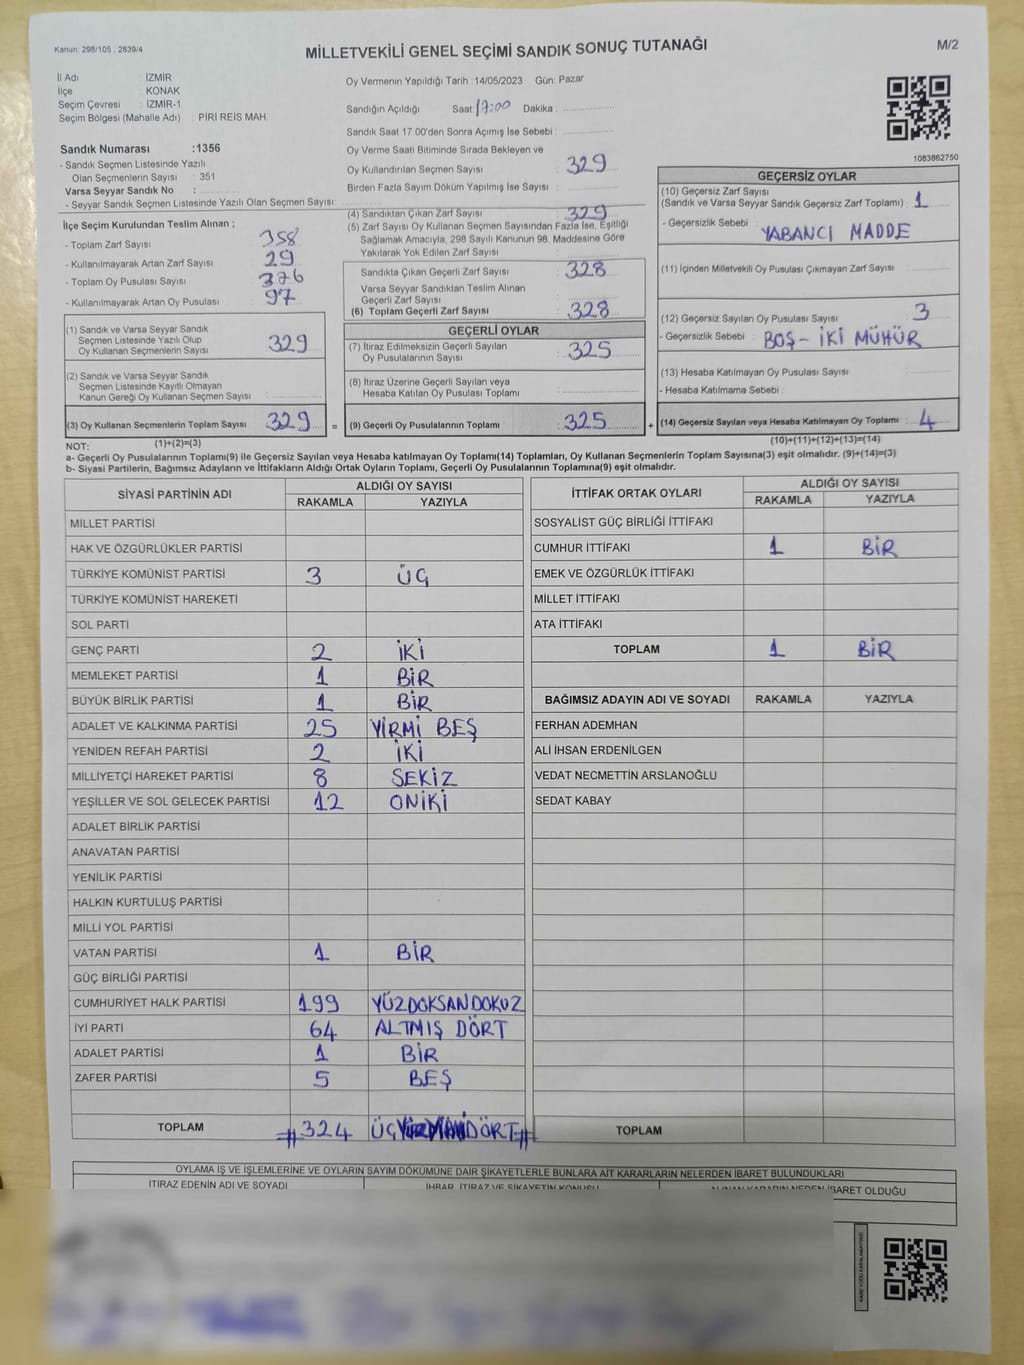 Kanun: 298/105 , 2839/4
MİLLETVEKİLİ GENEL SEÇİMİ SANDIK SONUÇ TUTANAĞI
M/2
İl Adı : İZMİR
İlçe : KONAK
Seçim Çevresi : İZMİR-1
Seçim Bölgesi (Mahalle Adı) : PİRİ REİS MAH.
Sandık Numarası :1356
- Sandık Seçmen Listesinde Yazılı
Olan Seçmenlerin Sayısı : 351
Varsa Seyyar Sandık No :
- Seyyar Sandık Seçmen Listesinde Yazılı Olan Seçmen Sayısı:
İlçe Seçim Kurulundan Teslim Alınan ;
- Toplam Zarf Sayısı : 358
- Kullanılmayarak Artan Zarf Sayısı : 29
- Toplam Oy Pusulası Sayısı : 376
- Kullanılmayarak Artan Oy Pusulası : 97
(1) Sandık ve Varsa Seyyar Sandık
Seçmen Listesinde Yazılı Olup
Oy Kullanan Seçmenlerin Sayısı : 329
(2) Sandık ve Varsa Seyyar Sandık
Seçmen Listesinde Kayıtlı Olmayan
Kanun Gereği Oy Kullanan Seçmen Sayısı :
(3) Oy Kullanan Seçmenlerin Toplam Sayısı : 329 =
Oy Vermenin Yapıldığı Tarih :14/05/2023 Gün: Pazar
Sandığın Açıldığı Saat: 17:00 Dakika :
Sandık Saat 17.00'den Sonra Açımış İse Sebebi :
Oy Verme Saati Bitiminde Sırada Bekleyen ve
Oy Kullandırılan Seçmen Sayısı : 329
Birden Fazla Sayım Döküm Yapılmış İse Sayısı :
(4) Sandıktan Çıkan Zarf Sayısı : 329
(5) Zarf Sayısı Oy Kullanan Seçmen Sayısından Fazla İse, Eşitliği
Sağlamak Amacıyla, 298 Sayılı Kanunun 98. Maddesine Göre
Yakılarak Yok Edilen Zarf Sayısı :
Sandıkta Çıkan Geçerli Zarf Sayısı : 328
Varsa Seyyar Sandıktan Teslim Alınan
Geçerli Zarf Sayısı :
(6) Toplam Geçerli Zarf Sayısı : 328
GEÇERLİ OYLAR
(7) İtiraz Edilmeksizin Geçerli Sayılan
Oy Pusulalarının Sayısı : 325
(8) İtiraz Üzerine Geçerli Sayılan veya
Hesaba Katılan Oy Pusulası Toplamı :
(9) Geçerli Oy Pusulalarının Toplamı : 325 +
1083862750
GEÇERSİZ OYLAR
(10) Geçersiz Zarf Sayısı
(Sandık ve Varsa Seyyar Sandık Geçersiz Zarf Toplamı) : 1
- Geçersizlik Sebebi : YABANCI MADDE
(11) İçinden Milletvekili Oy Pusulası Çıkmayan Zarf Sayısı :
(12) Geçersiz Sayılan Oy Pusulası Sayısı : 3
- Geçersizlik Sebebi : BOŞ - İKİ MÜHÜR
(13) Hesaba Katılmayan Oy Pusulası Sayısı :
- Hesaba Katılmama Sebebi :
(14) Geçersiz Sayılan veya Hesaba Katılmayan Oy Toplamı : 4
NOT: (1)+(2)=(3) (10)+(11)+(12)+(13)=(14)
a- Geçerli Oy Pusulalarının Toplamı(9) ile Geçersiz Sayılan veya Hesaba katılmayan Oy Toplamı(14) Toplamları, Oy Kullanan Seçmenlerin Toplam Sayısına(3) eşit olmalıdır. (9)+(14)=(3)
b- Siyasi Partilerin, Bağımsız Adayların ve İttifakların Aldığı Ortak Oyların Toplamı, Geçerli Oy Pusulalarının Toplamına(9) eşit olmalıdır.
SİYASİ PARTİNİN ADI ALDIĞI OY SAYISI
RAKAMLA YAZIYLA
MİLLET PARTİSİ
HAK VE ÖZGÜRLÜKLER PARTİSİ
TÜRKİYE KOMÜNİST PARTİSİ 3 ÜÇ
TÜRKİYE KOMÜNİST HAREKETİ
SOL PARTİ
GENÇ PARTİ 2 İKİ
MEMLEKET PARTİSİ 1 BİR
BÜYÜK BİRLİK PARTİSİ 1 BİR
ADALET VE KALKINMA PARTİSİ 25 YİRMİ BEŞ
YENİDEN REFAH PARTİSİ 2 İKİ
MİLLİYETÇİ HAREKET PARTİSİ 8 SEKİZ
YEŞİLLER VE SOL GELECEK PARTİSİ 12 ONİKİ
ADALET BİRLİK PARTİSİ
ANAVATAN PARTİSİ
YENİLİK PARTİSİ
HALKIN KURTULUŞ PARTİSİ
MİLLİ YOL PARTİSİ
VATAN PARTİSİ 1 BİR
GÜÇ BİRLİĞİ PARTİSİ
CUMHURİYET HALK PARTİSİ 199 YÜZDOKSANDOKUZ
İYİ PARTİ 64 ALTMIŞ DÖRT
ADALET PARTİSİ 1 BİR
ZAFER PARTİSİ 5 BEŞ
TOPLAM #324 ÜÇYÜZYİRMİDÖRT#
İTTİFAK ORTAK OYLARI ALDIĞI OY SAYISI
RAKAMLA YAZIYLA
SOSYALİST GÜÇ BİRLİĞİ İTTİFAKI
CUMHUR İTTİFAKI 1 BİR
EMEK VE ÖZGÜRLÜK İTTİFAKI
MİLLET İTTİFAKI
ATA İTTİFAKI
TOPLAM 1 BİR
BAĞIMSIZ ADAYIN ADI VE SOYADI RAKAMLA YAZIYLA
FERHAN ADEMHAN
ALİ İHSAN ERDENİLGEN
VEDAT NECMETTİN ARSLANOĞLU
SEDAT KABAY
TOPLAM
OYLAMA İŞ VE İŞLEMLERİNE VE OYLARIN SAYIM DÖKÜMÜNE DAİR ŞİKAYETLERLE BUNLARA AİT KARARLARIN NELERDEN İBARET BULUNDUKLARI
İTİRAZ EDENİN ADI VE SOYADI İHBAR, İTİRAZ VE ŞİKAYETİN KONUSU ALINAN KARARIN NEDEN İBARET OLDUĞU